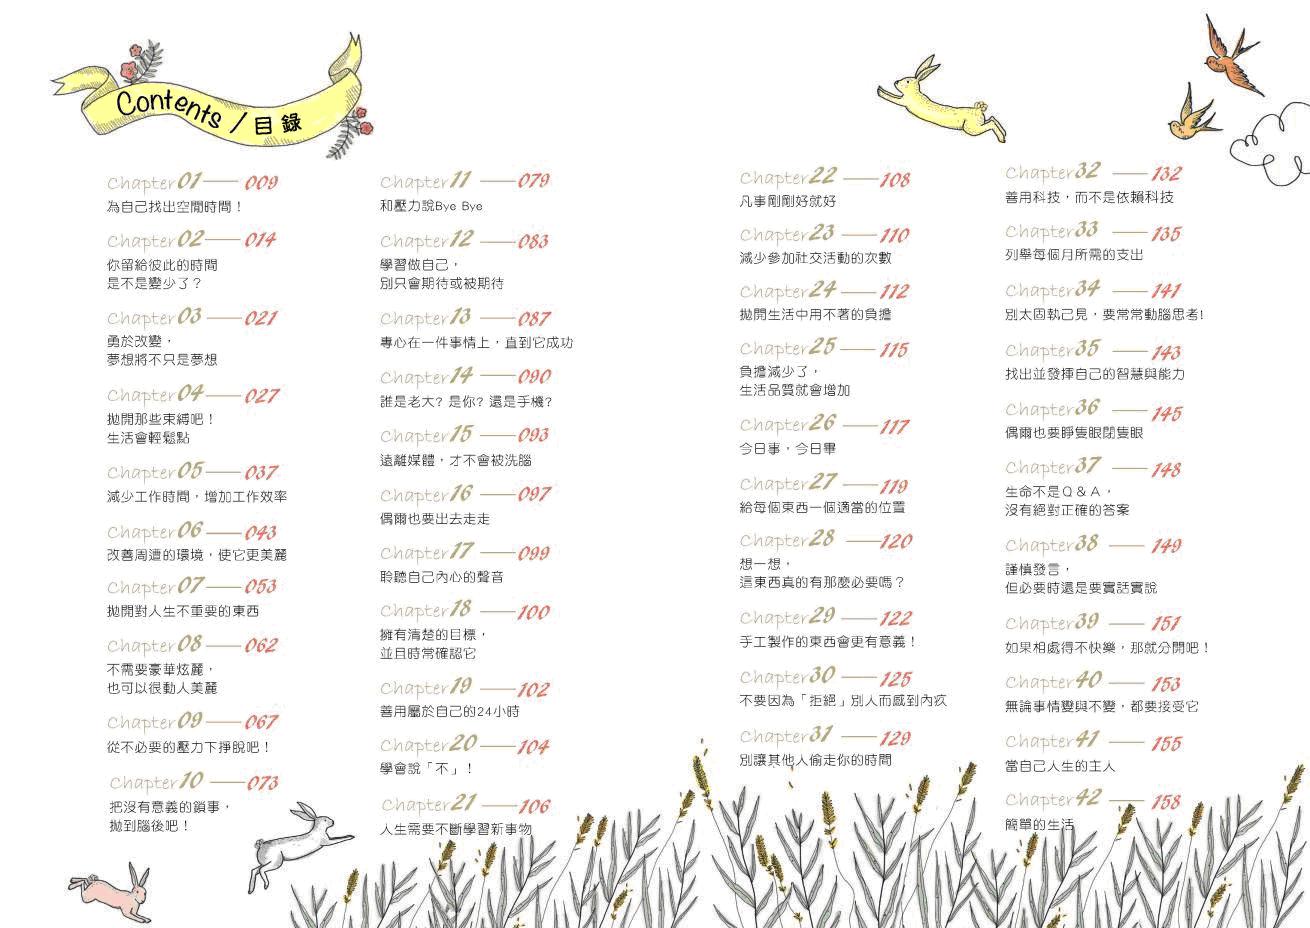 Contents / 目錄
Chapter 01 — 009
為自己找出空閒時間！
Chapter 02 — 014
你留給彼此的時間
是不是變少了？
Chapter 03 — 021
勇於改變，
夢想將不只是夢想
Chapter 04 — 027
拋開那些束縛吧！
生活會輕鬆點
Chapter 05 — 037
減少工作時間，增加工作效率
Chapter 06 — 043
改善周遭的環境，使它更美麗
Chapter 07 — 053
拋開對人生不重要的東西
Chapter 08 — 062
不需要豪華炫麗，
也可以很動人美麗
Chapter 09 — 067
從不必要的壓力下掙脫吧！
Chapter 10 — 073
把沒有意義的鎖事，
拋到腦後吧！
Chapter 11 — 079
和壓力說Bye Bye
Chapter 12 — 083
學習做自己，
別只會期待或被期待
Chapter 13 — 087
專心在一件事情上，直到它成功
Chapter 14 — 090
誰是老大? 是你? 還是手機?
Chapter 15 — 093
遠離媒體，才不會被洗腦
Chapter 16 — 097
偶爾也要出去走走
Chapter 17 — 099
聆聽自己內心的聲音
Chapter 18 — 100
擁有清楚的目標，
並且時常確認它
Chapter 19 — 102
善用屬於自己的24小時
Chapter 20 — 104
學會說「不」！
Chapter 21 — 106
人生需要不斷學習新事物
Chapter 22 — 108
凡事剛剛好就好
Chapter 23 — 110
減少參加社交活動的次數
Chapter 24 — 112
拋開生活中用不著的負擔
Chapter 25 — 115
負擔減少了，
生活品質就會增加
Chapter 26 — 117
今日事，今日畢
Chapter 27 — 119
給每個東西一個適當的位置
Chapter 28 — 120
想一想，
這東西真的有那麼必要嗎？
Chapter 29 — 122
手工製作的東西會更有意義！
Chapter 30 — 125
不要因為「拒絕」別人而感到內疚
Chapter 31 — 129
別讓其他人偷走你的時間
Chapter 32 — 132
善用科技，而不是依賴科技
Chapter 33 — 135
列舉每個月所需的支出
Chapter 34 — 141
別太固執己見，要常常動腦思考!
Chapter 35 — 143
找出並發揮自己的智慧與能力
Chapter 36 — 145
偶爾也要睜隻眼閉隻眼
Chapter 37 — 148
生命不是Ｑ＆Ａ，
沒有絕對正確的答案
Chapter 38 — 149
謹慎發言，
但必要時還是要實話實說
Chapter 39 — 151
如果相處得不快樂，那就分開吧！
Chapter 40 — 153
無論事情變與不變，都要接受它
Chapter 41 — 155
當自己人生的主人
Chapter 42 — 158
簡單的生活